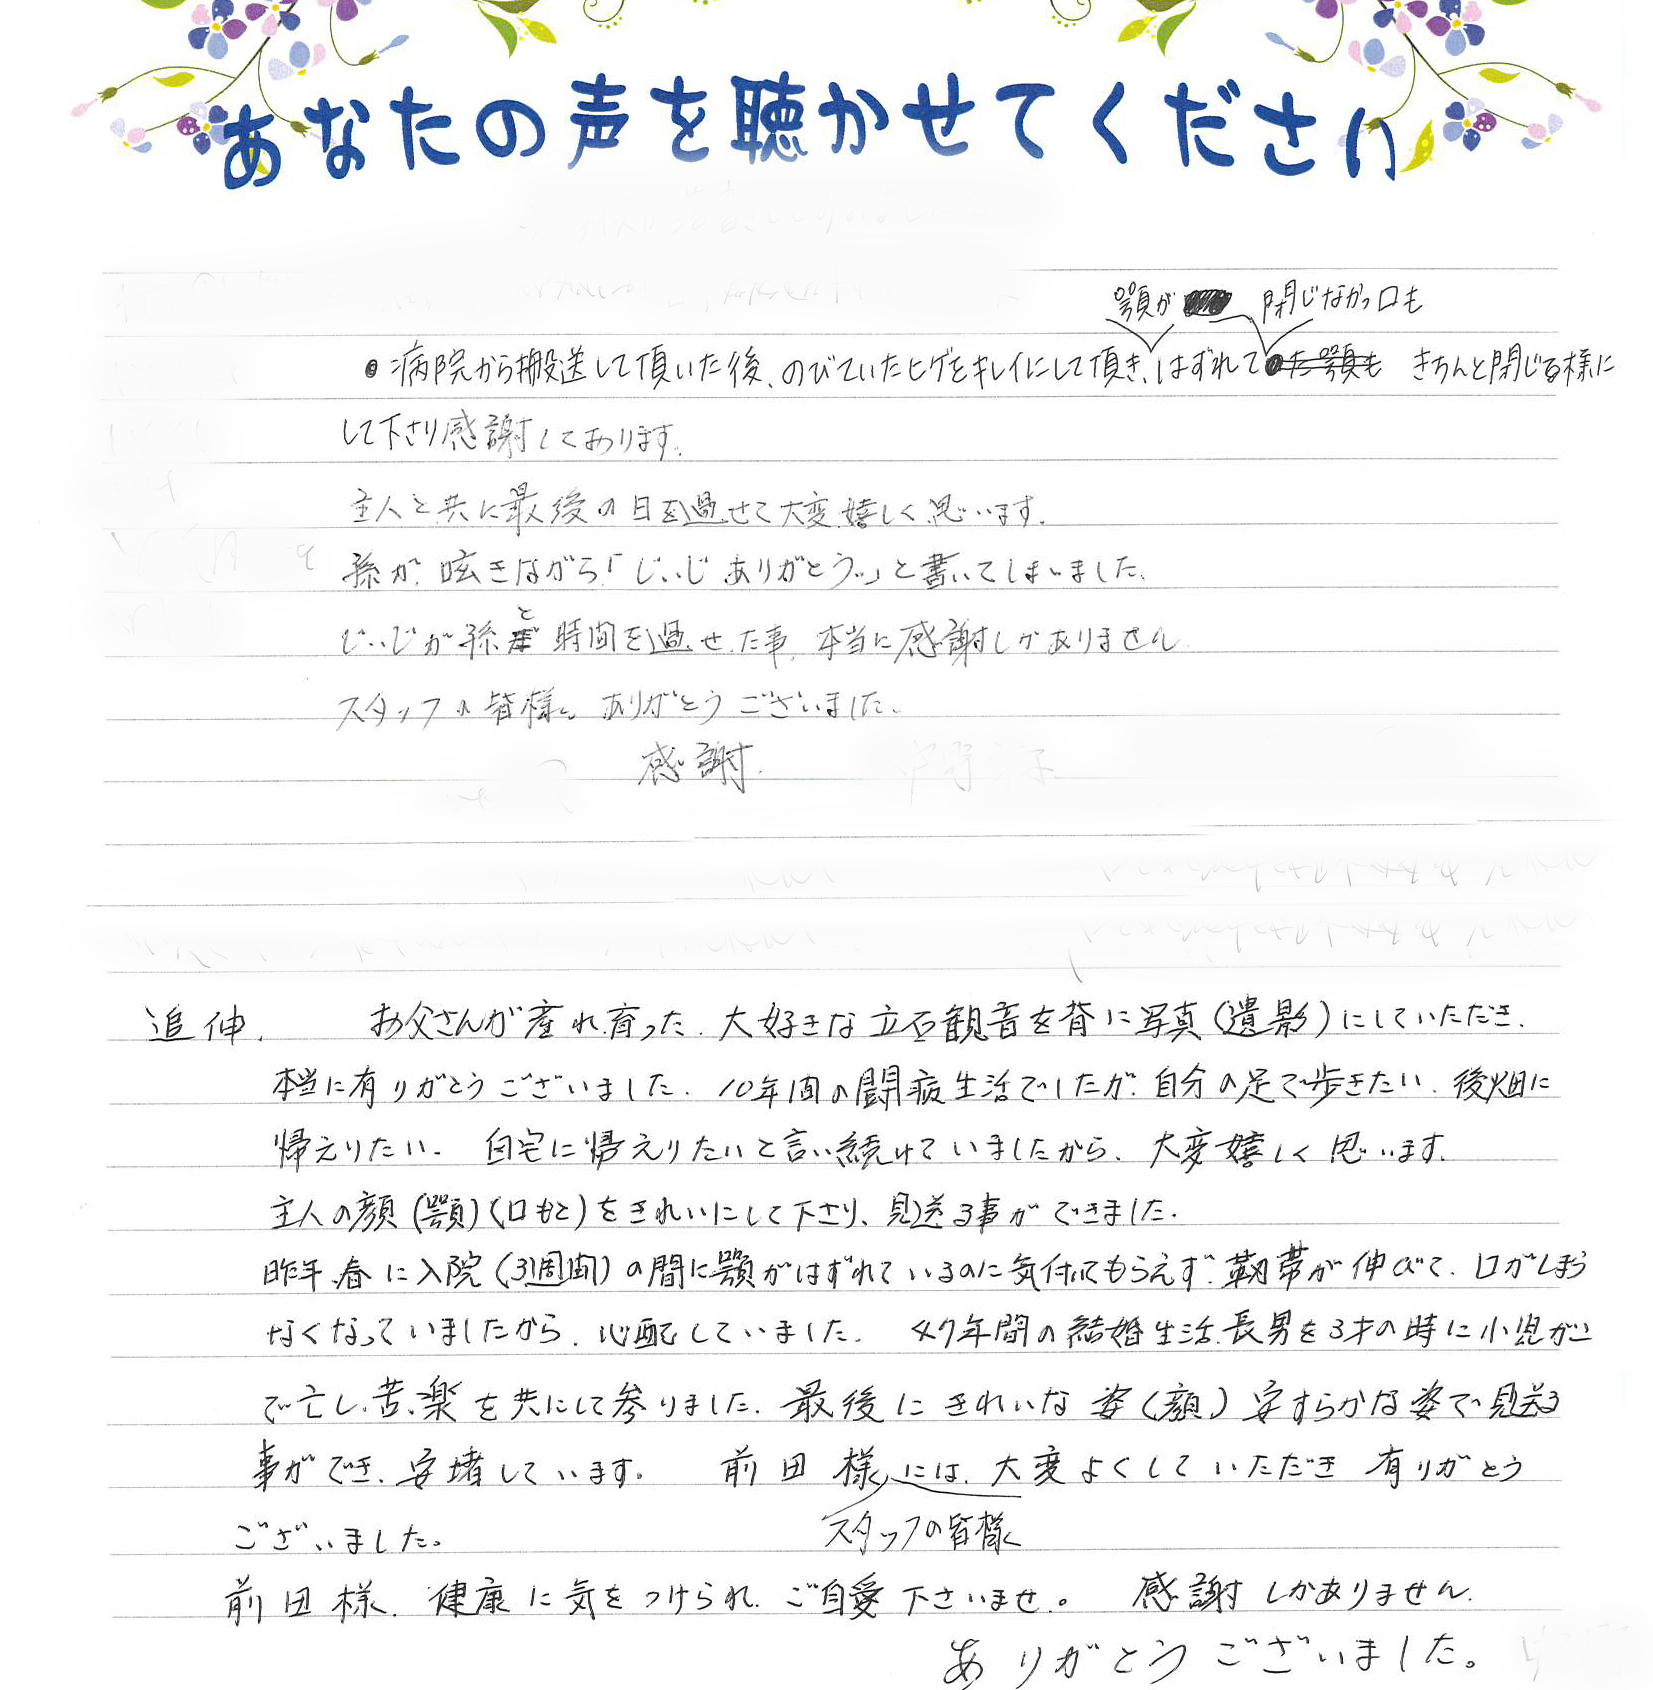 あなたの声を聴かせてください
顎が 閉じなかっ口も
●病院から搬送して頂いた後、のびていたヒゲをキレイにして頂き、はずれて た顎も きちんと閉じる様に
して下さり感謝してあります。
主人と共に最後の日を過せて大変嬉しく思います。
孫が、呟きながら「じいじ ありがとう。」と書いてしまいました。
じいじが孫と時間を過せた事、本当に感謝しかありません
スタッフの皆様、ありがとうございました。
感謝.
追伸. お父さんが産れ育った、大好きな立石観音を背に写真(遺影)にしていただき、
本当に有りがとうございました、10年間の闘病生活でしたが、自分の足で歩きたい、後畑に
帰えりたい、自宅に帰えりたいと言い続けていましたから、大変嬉しく思います。
主人の顔(顎)(口もと)をきれいにして下さり、見送る事ができました。
昨年、春に入院(3週間)の間に顎がはずれているのに気付いてもらえず、靭帯が伸びて、口がしまら
なくなっていましたから、心配していました。 47年間の結婚生活、長男を3才の時に小児がン
で亡し、苦、楽を共にして参りました、最後にきれいな姿(顔)安すらかな姿で見送る
事ができ、安堵しています。 前田様には、大変よくしていただき有りがとう
スタッフの皆様
ございました。
前田様、健康に気をつけられ、ご自愛下さいませ。 感謝しかありません、
ありがとうございました。